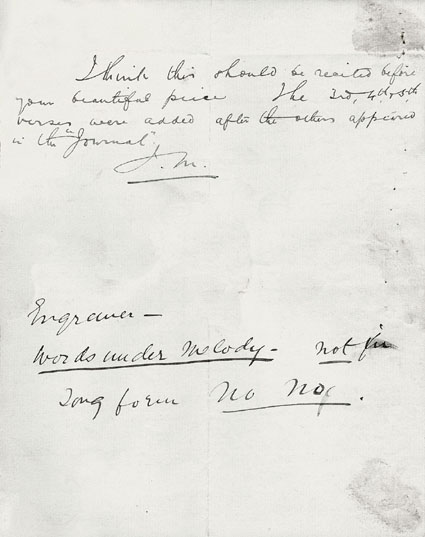 I think this should be recited before
your beautiful piece The 3rd, 4th, 5th
verses were added after the others appeared
in the "Journal"
J. M.
Engraver —
words under melody — not in
song form no no.